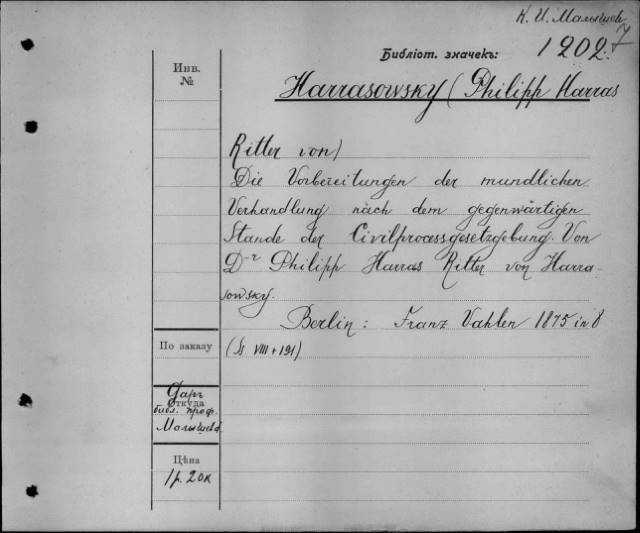 К. И. Малышев
7
Библіот. значекъ:
1202.
Инв.
№
Harrasowsky (Philipp Harras
Ritter von)
Die Vorbereitungen der mundlichen
Verhandlung nach dem gegenwärtigen
Stande der Civilprocessgesetzgebung. Von
Dr Philipp Harras Ritter von Harra-
sowsky.
Berlin: Franz Vahlen 1875 in 8
По заказу
(Ss VIII + 191).
Даръ
Откуда
библ. проф.
Малышева
Цѣна
1 р. 20 к